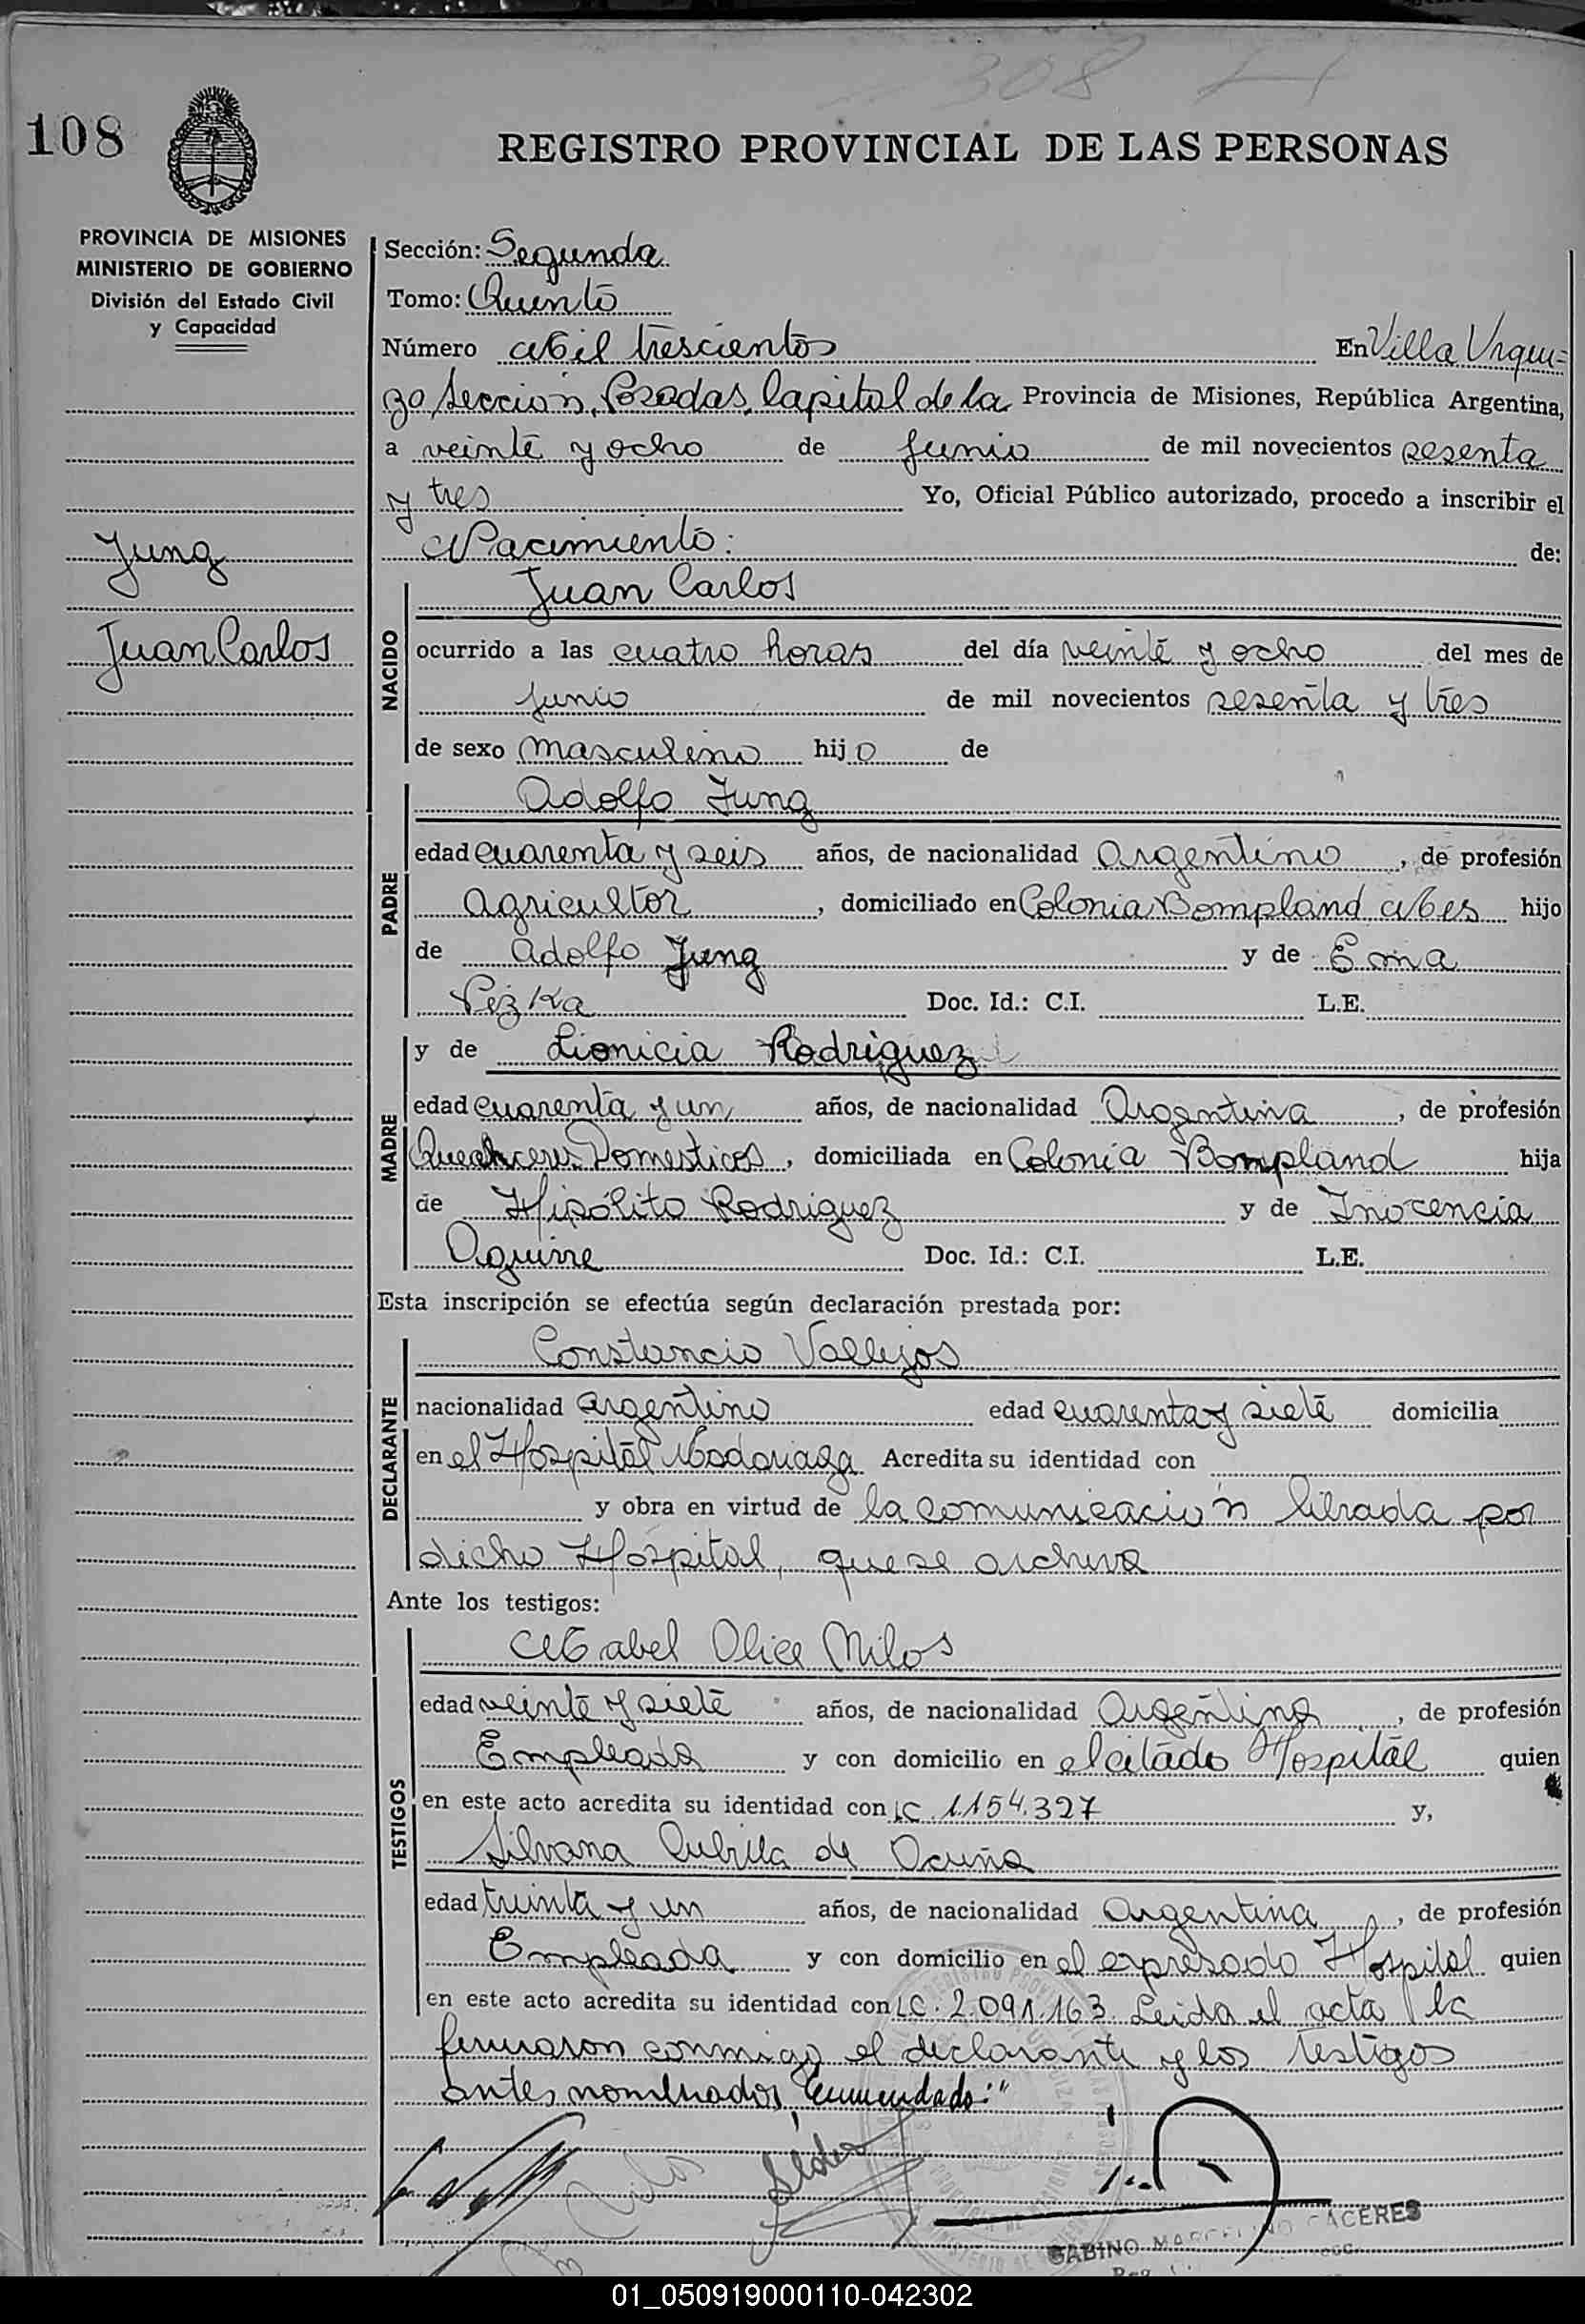 308
108
REGISTRO PROVINCIAL DE LAS PERSONAS
PROVINCIA DE MISIONES
MINISTERIO DE GOBIERNO
División del Estado Civil
y Capacidad
Jung
Juan Carlos
Sección: Segunda
Tomo: Quinto
Número Mil trescientos En Villa Urqui=
za Sección, Posadas, Capital de la Provincia de Misiones, República Argentina,
a veinte y ocho de junio de mil novecientos sesenta
y tres Yo, Oficial Público autorizado, procedo a inscribir el
Nacimiento: de:
NACIDO
Juan Carlos
ocurrido a las cuatro horas del día veinte y ocho del mes de
junio de mil novecientos sesenta y tres
de sexo masculino hijo de
PADRE
Adolfo Jung
edad cuarenta y seis años, de nacionalidad Argentino, de profesión
Agricultor, domiciliado en Colonia Bompland Mes hijo
de Adolfo Jung y de Ema
Pezka Doc. Id.: C.I. L.E.
MADRE
y de Lionicia Rodriguez
edad cuarenta y un años, de nacionalidad Argentina, de profesión
Quehaceres Domesticos, domiciliada en Colonia Bompland hija
de Hipólito Rodriguez y de Inocencia
Aguirre Doc. Id.: C.I. L.E.
Esta inscripción se efectúa según declaración prestada por:
DECLARANTE
Constancio Vallejos
nacionalidad argentino edad cuarenta y siete domicilia
en el Hospital Madariaga Acredita su identidad con
y obra en virtud de la comunicación librada por
dicho Hospital, que se archiva
Ante los testigos:
TESTIGOS
Mabel Olice Milos
edad veinte y siete años, de nacionalidad Argentina, de profesión
Empleada y con domicilio en el citado Hospital quien
en este acto acredita su identidad con LC. 1.154.327 y,
Silvana Cubilla de Acuña
edad treinta y un años, de nacionalidad Argentina, de profesión
Empleada y con domicilio en el expresado Hospital quien
en este acto acredita su identidad con LC. 2.091.163. Leida el acta la
firmaron conmigo el declarante y los testigos
antes nombrados, "Enmendado:"
GABINO MARCELINO CACERES
01_050919000110-042302